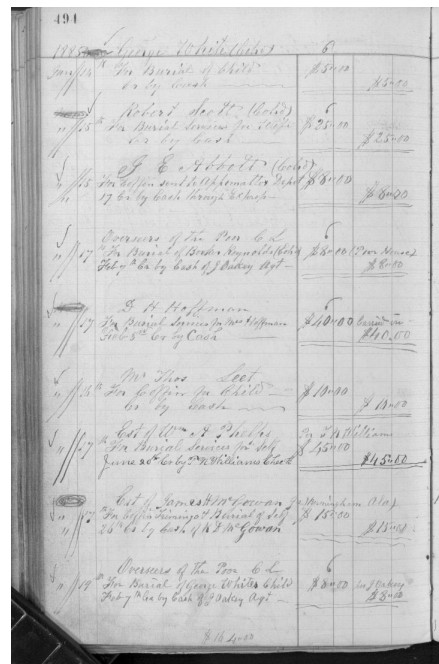 494
1885 George White (Col'd) 6
Jany 14 For Burial of Child $5-00
Cr by Cash $5-00
Robert Scott (Col'd) 6
" 15 For Burial Services for Wife $25-00
Cr by Cash $25-00
G E Abbott (Col'd)
" 15 For Coffin sent to Appomattox Depot $8-00
17 Cr by Cash through Express $8-00
Overseers of the Poor C L 6
" 17 For Burial of Reynolds (Col'd) $8-00 (Poor House)
Feby 7th Cr by Cash of J Oakey Agt $8-00
D H Hoffman 6
" 17 For Burial Services for Mrs Hoffman $40-00
Feb 5th Cr by Cash $40.00
Mr Thos Leet
" For Coffin for Child $10-00
Cr by Cash $10-00
Est of Wm A Phelps Per T N Williams
" 17 For Burial Services for Self $45-00
June 20th Cr by T N Williams Check $45-00
Est of James H McGowan (Birmingham Ala)
" 17 For Coffin Trimings & Burial of Self $15-00
26th Cr by Cash of McGowan $15-00
Overseers of the Poor C L 6
" 19 For Burial of George Whites Child $3-00
Feby 7th Cr by Cash of J Oakey Agt $3-00
$164-00